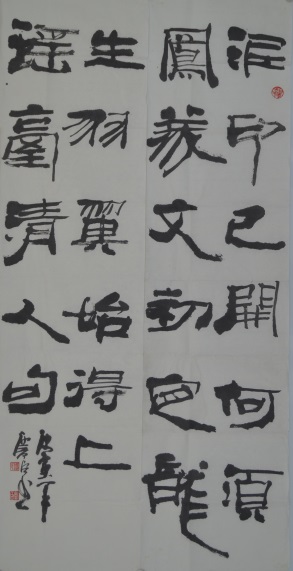 泥印已開何須
鳳篆文初定龍
生羽翼始得上
瑤臺清人句
庚寅年